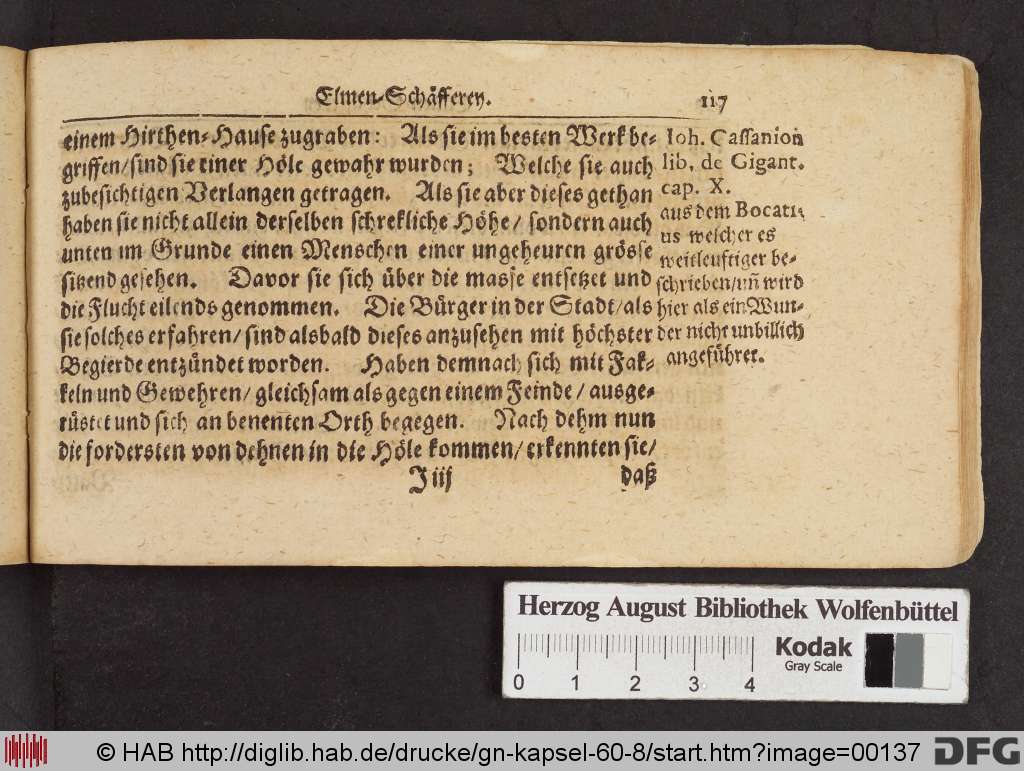 Elmen-Schäfferey. 117
einem Hirthen-Hause zugraben: Als sie im besten Werk be-
griffen/ sind sie einer Höle gewahr wurden; Welche sie auch
zubesichtigen Verlangen getragen. Als sie aber dieses gethan
haben sie nicht allein derselben schrekliche Höhe/ sondern auch
unten im Grunde einen Menschen einer ungeheuren grösse
sitzend gesehen. Davor sie sich über die masse entsetzet und
die Flucht eilends genommen. Die Bürger in der Stadt/ als
sie solches erfahren/ sind alsbald dieses anzusehen mit höchster
Begierde entzündet worden. Haben demnach sich mit Fak-
keln und Gewehren/ gleichsam als gegen einem Feinde/ ausge-
rüstet und sich an benenten Orth begegen. Nach dehm nun
die fordersten von dehnen in die Höle kommen/ erkennten sie/
J iij daß
Ioh. Cassanion
lib. de Gigant.
cap. X.
aus dem Bocati-
us welcher es
weitleuftiger be-
schrieben/ uñ wird
hier als ein Wun-
der nicht unbillich
angeführet.
Herzog August Bibliothek Wolfenbüttel
0 1 2 3 4
Kodak
Gray Scale
© HAB http://diglib.hab.de/drucke/gn-kapsel-60-8/start.htm?image=00137
DFG